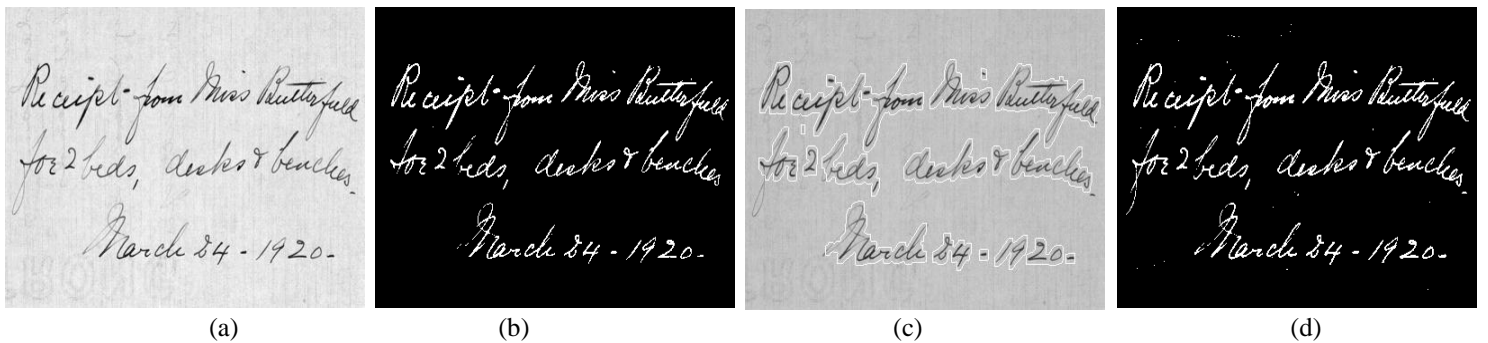 Receipt from Miss Butterfield
for 2 beds, desks & benches.
March 24 - 1920.
Receipt from Miss Butterfield
for 2 beds, desks & benches
March 24 - 1920.
Receipt from Miss Butterfield
for 2 beds, desks & benches.
March 24 - 1920.
Receipt from Miss Butterfield
for 2 beds, desks & benches.
March 24 - 1920.
(a) (b) (c) (d)